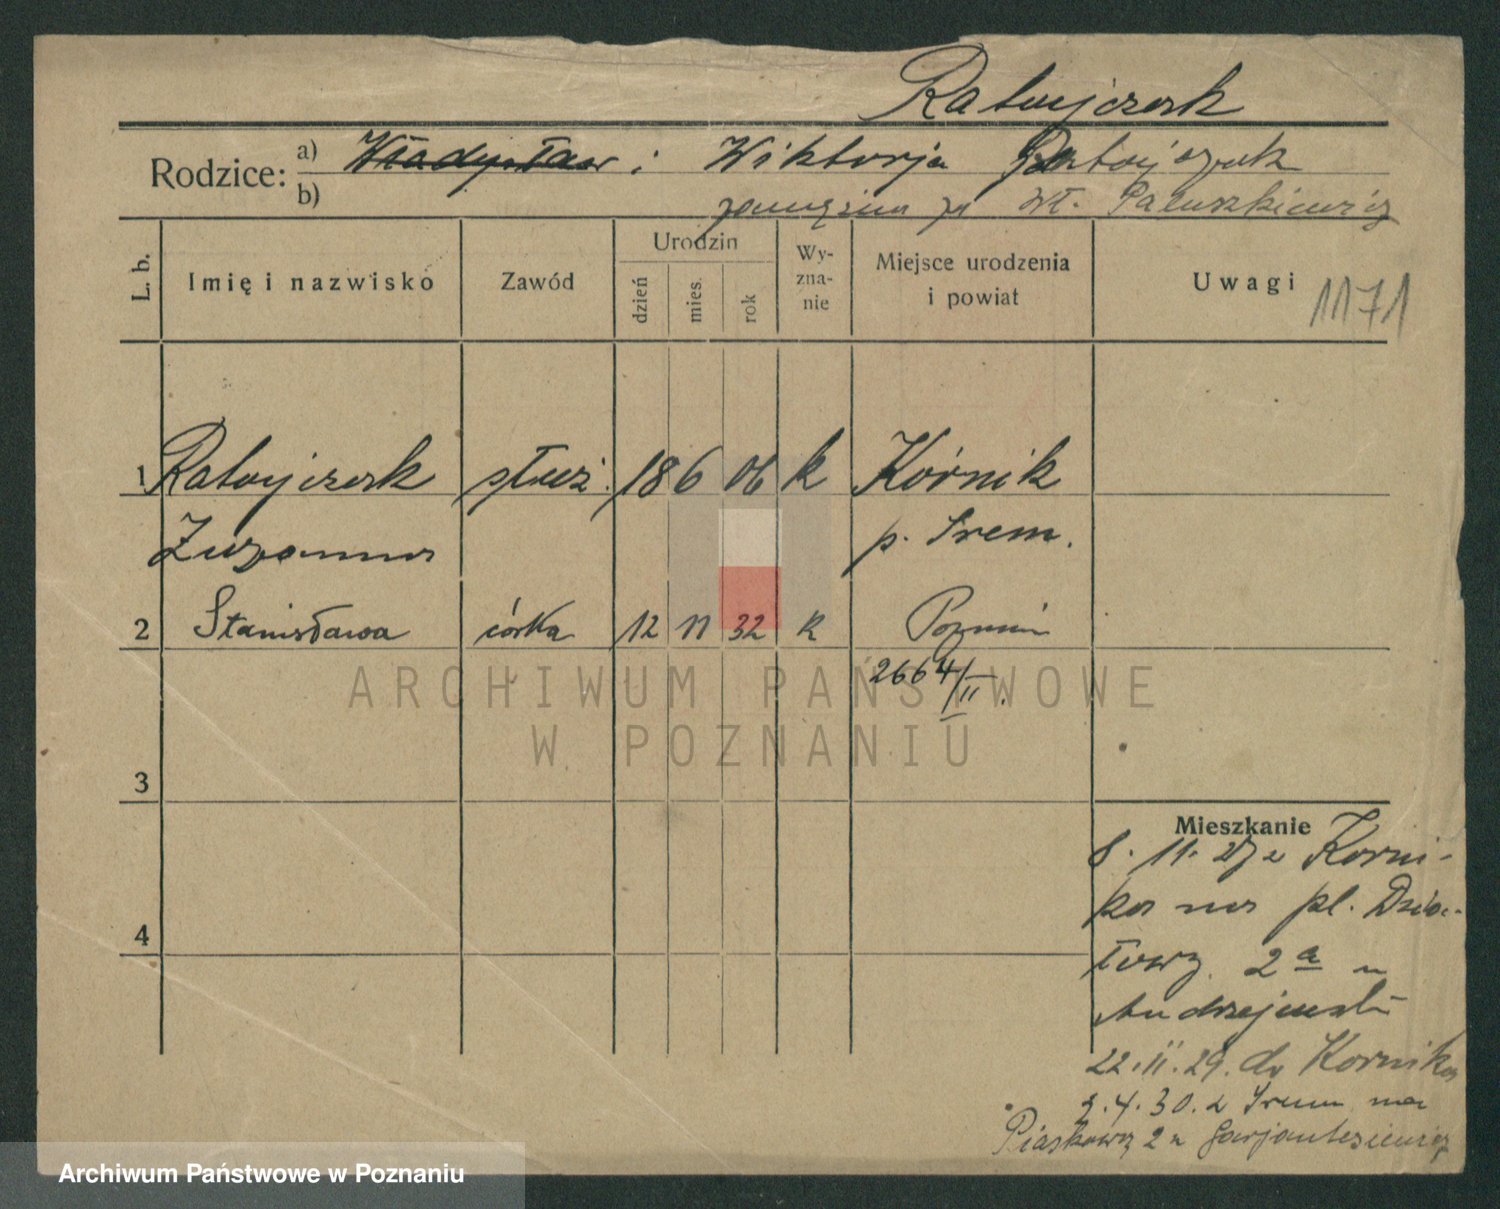 Ratajczak
Rodzice: a) Władysław i Wiktorja Ratajczak
b) zamężna za Wł. Paluszkiewicz
L. b. Imię i nazwisko Zawód Urodzin dzień mies. rok Wy-zna-nie Miejsce urodzenia i powiat Uwagi 1171
1 Ratajczak służ. 18 6 06 k Kórnik
Zuzanna p. Śrem.
2 Stanisława córka 12 11 32 k Poznań
2664/II.
ARCHIWUM PAŃSTWOWE
W POZNANIU
3
Mieszkanie
8. 11. 27 z Korni-
ka na pl. Dzia-
łowy 2a u
Andrzejewski
4
22.11.29. do Kornika
2.4.30. z Śrem na
Piaskowa 2 u
Archiwum Państwowe w Poznaniu